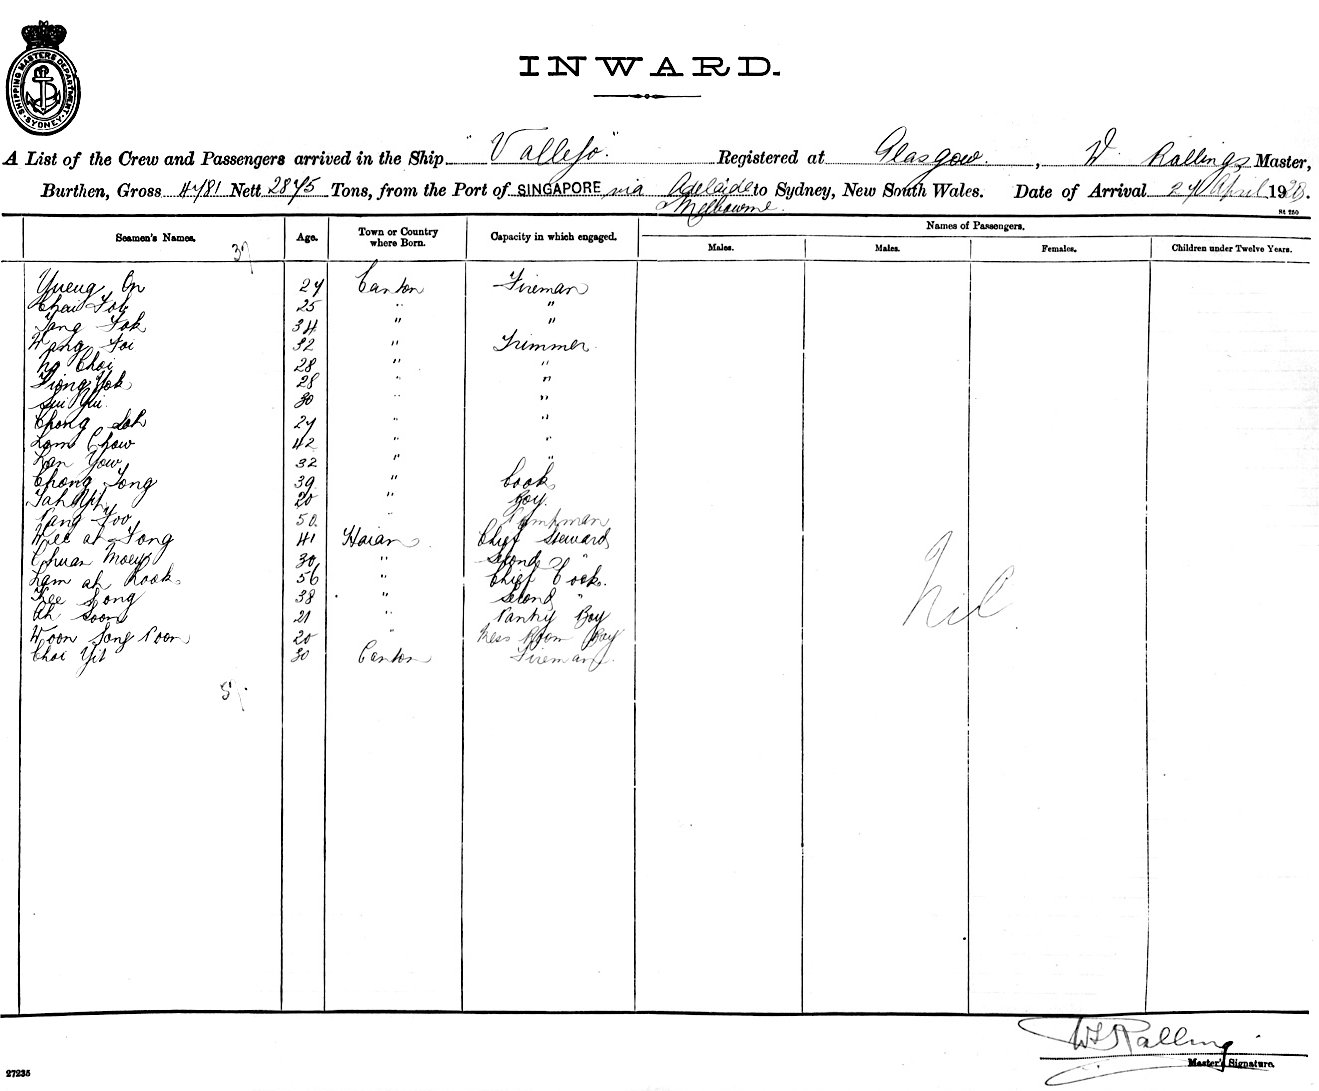 SHIPPING MASTERS DEPARTMENT · SYDNEY ·
INWARD.
A List of the Crew and Passengers arrived in the Ship "Vallejo." Registered at Glasgow. , W. Rallings Master,
Burthen, Gross 4781 Nett 2875 Tons, from the Port of SINGAPORE via Adelaide to Sydney, New South Wales. Date of Arrival April 19
& Melbourne.
St 250
Seamen's Names. Age. Town or Country where Born. Capacity in which engaged. Names of Passengers.
Males. Males. Females. Children under Twelve Years.
37
Yueng On 27 Canton Fireman
Chai Fok 25 " "
Tang Fok 34 " "
Wang Foi 32 " Trimmer
Ng Choi 28 " "
28 " "
Sui Yui 30 " "
Chong Sah 27 " "
Lam Chow 42 " "
Lan Yow 32 " "
Chong Tong 39 " Cook
20 " Boy.
50. " Pumpman
Wee ah Fong 41 Haian Chief Steward
Chuan Moey 30 " Second "
Lam ah Kook 56 " Chief Cook.
Kee Song 38 " Second "
Ah Soon 21 " Pantry Boy
Woon Song Poon 20 " Mess Room Boy
Choi Yit 30 Canton Fireman.
Nil.
Master's Signature.
27235